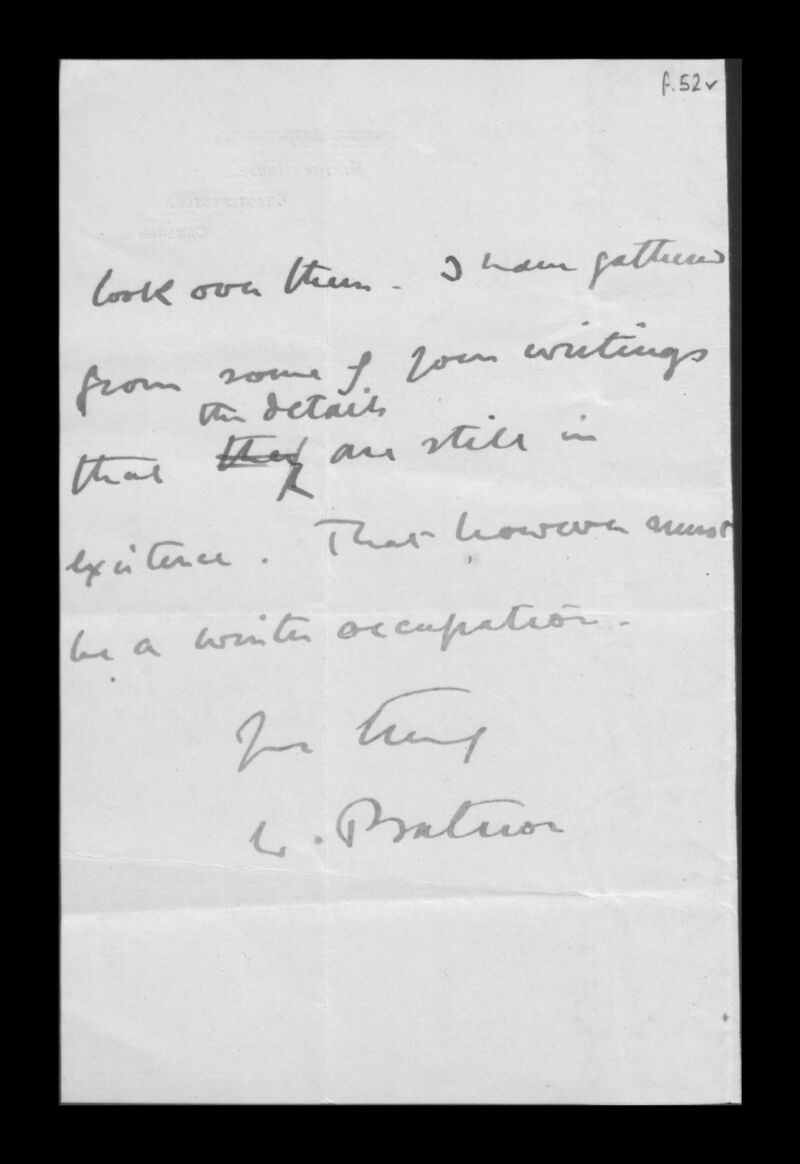 f.52v
look over them. I have gathered
from some of your writings
the details
that they are still in
existence. That however must
be a winter occupation.
Yours truly
W. Bateson